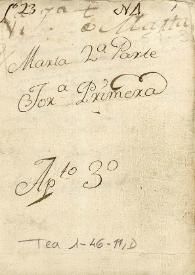 Lo 23 NA
Maria 2a Parte
Jora Primera
Apto 3o
Tea 1-46-11, D